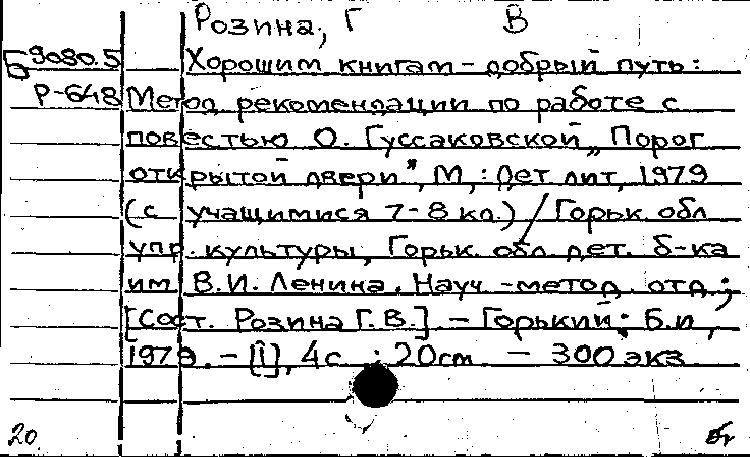 Розина, Г В
Б 9080.5 Хорошим книгам - добрый путь:
Р-648 Метод, рекомендации по работе с
повестью О. Гуссаковской „Порог
открытой двери", М,: Дет лит, 1979
(с учащимися 7-8 кл.) / Горьк. обл
упр. культуры, Горьк. обл. дет. б-ка
им. В.И. Ленина. Науч.-метод. отд.;
[Сост. Розина Г.В.] - Горький: Б.и,
1979. - [1], 4с ; 20 см - 300 экз
20